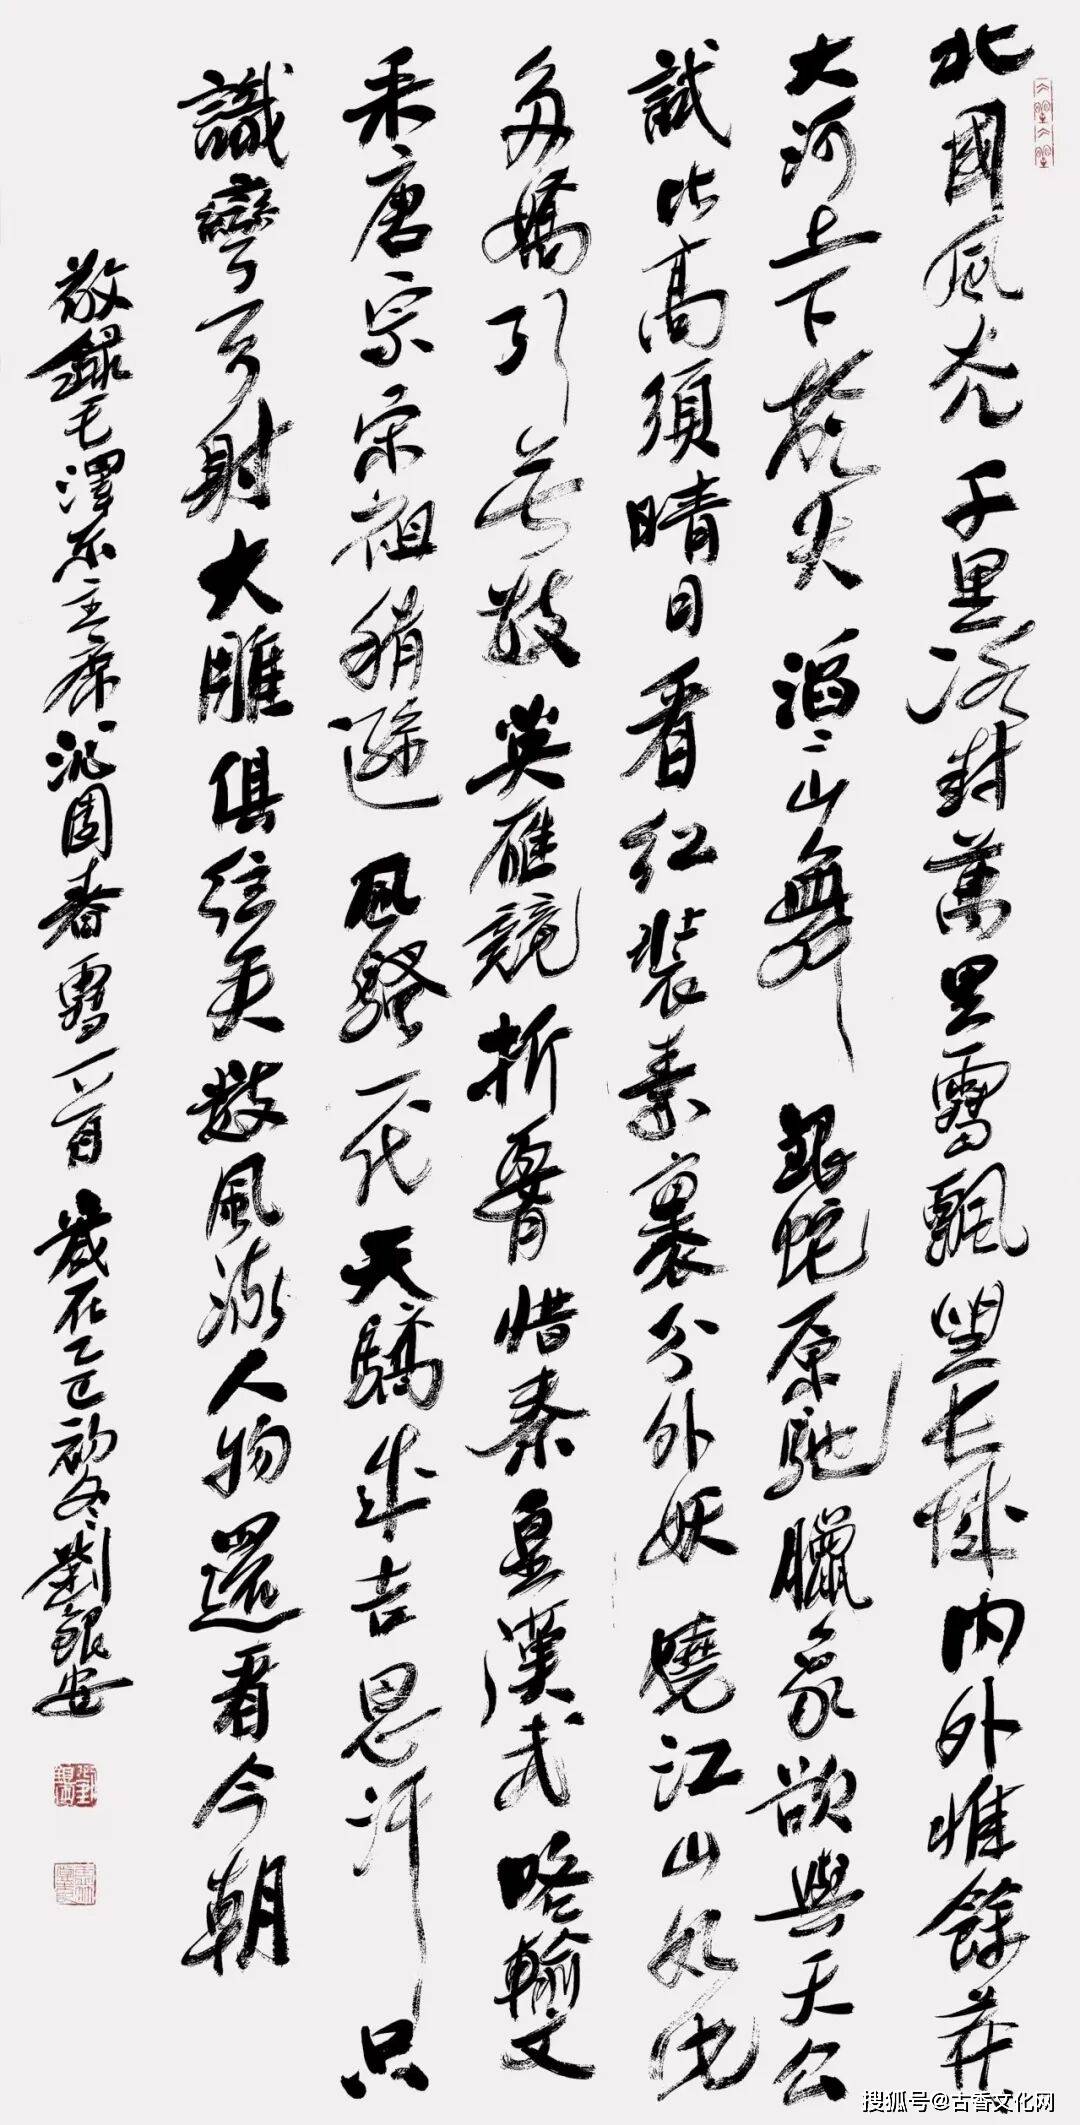 北國風光千里冰封萬里雪飄望長城內外惟餘莽〻
大河上下頓失滔〻山舞銀蛇原馳臘象欲與天公
試比高須晴日看紅裝素裹分外妖嬈江山如此
多嬌引無數英雄競折腰惜秦皇漢武略輸文
采唐宗宋祖稍遜風騷一代天驕成吉思汗只
識彎弓射大雕俱往矣數風流人物還看今朝
敬錄毛澤東主席沁園春雪一首歲在乙巳初冬劉銀安
搜狐号@古香文化网